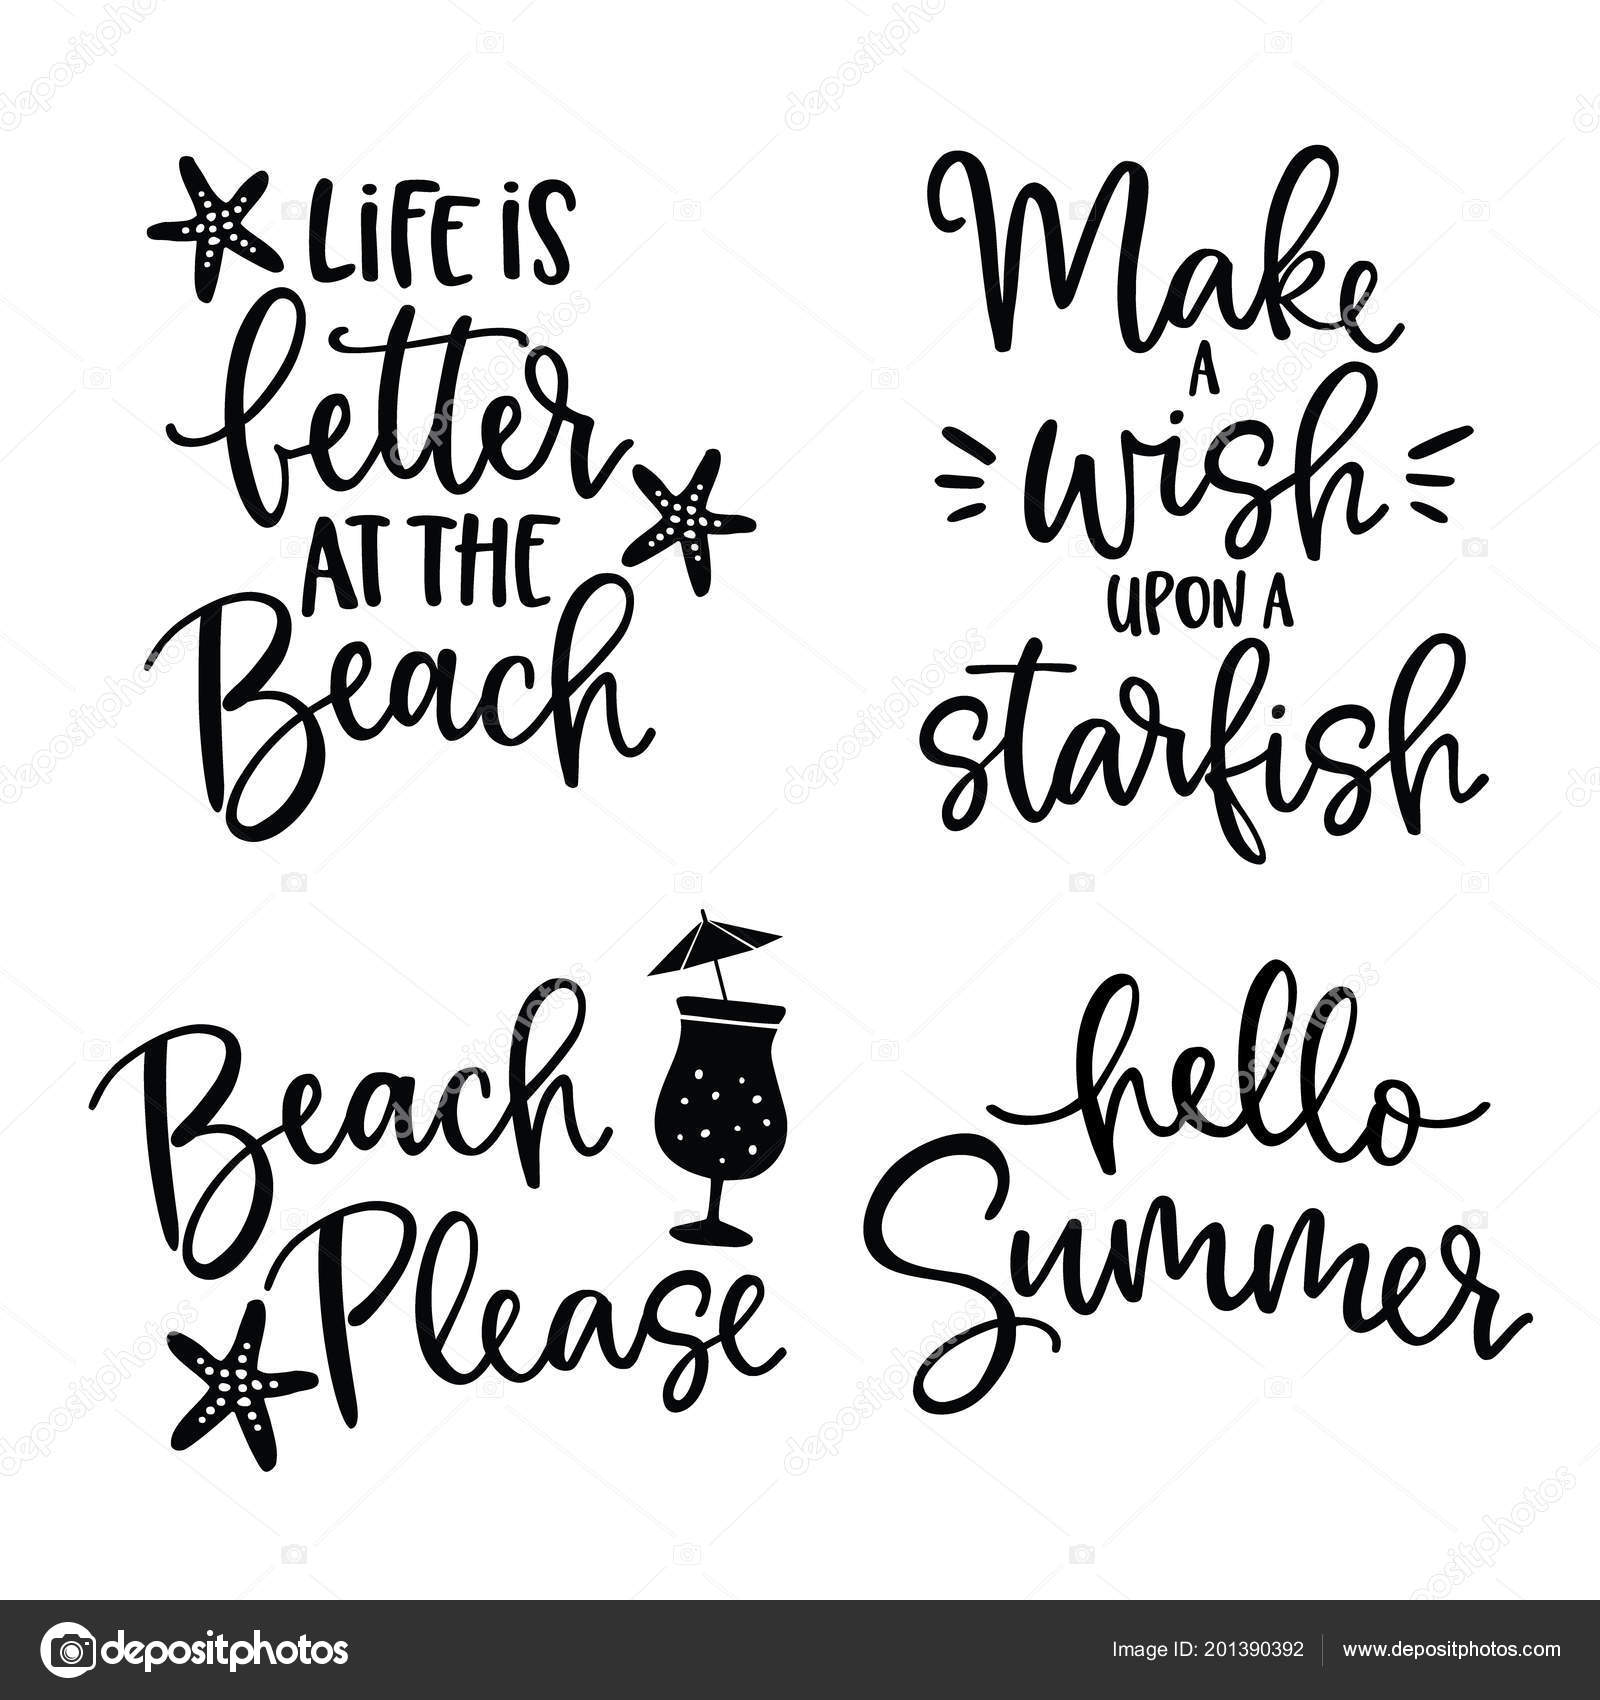 LiFE iS
better
AT THE
Beach
Make
A
wish
UPON A
starfish
Beach
Please
hello
Summer
depositphotos
Image ID: 201390392
www.depositphotos.com